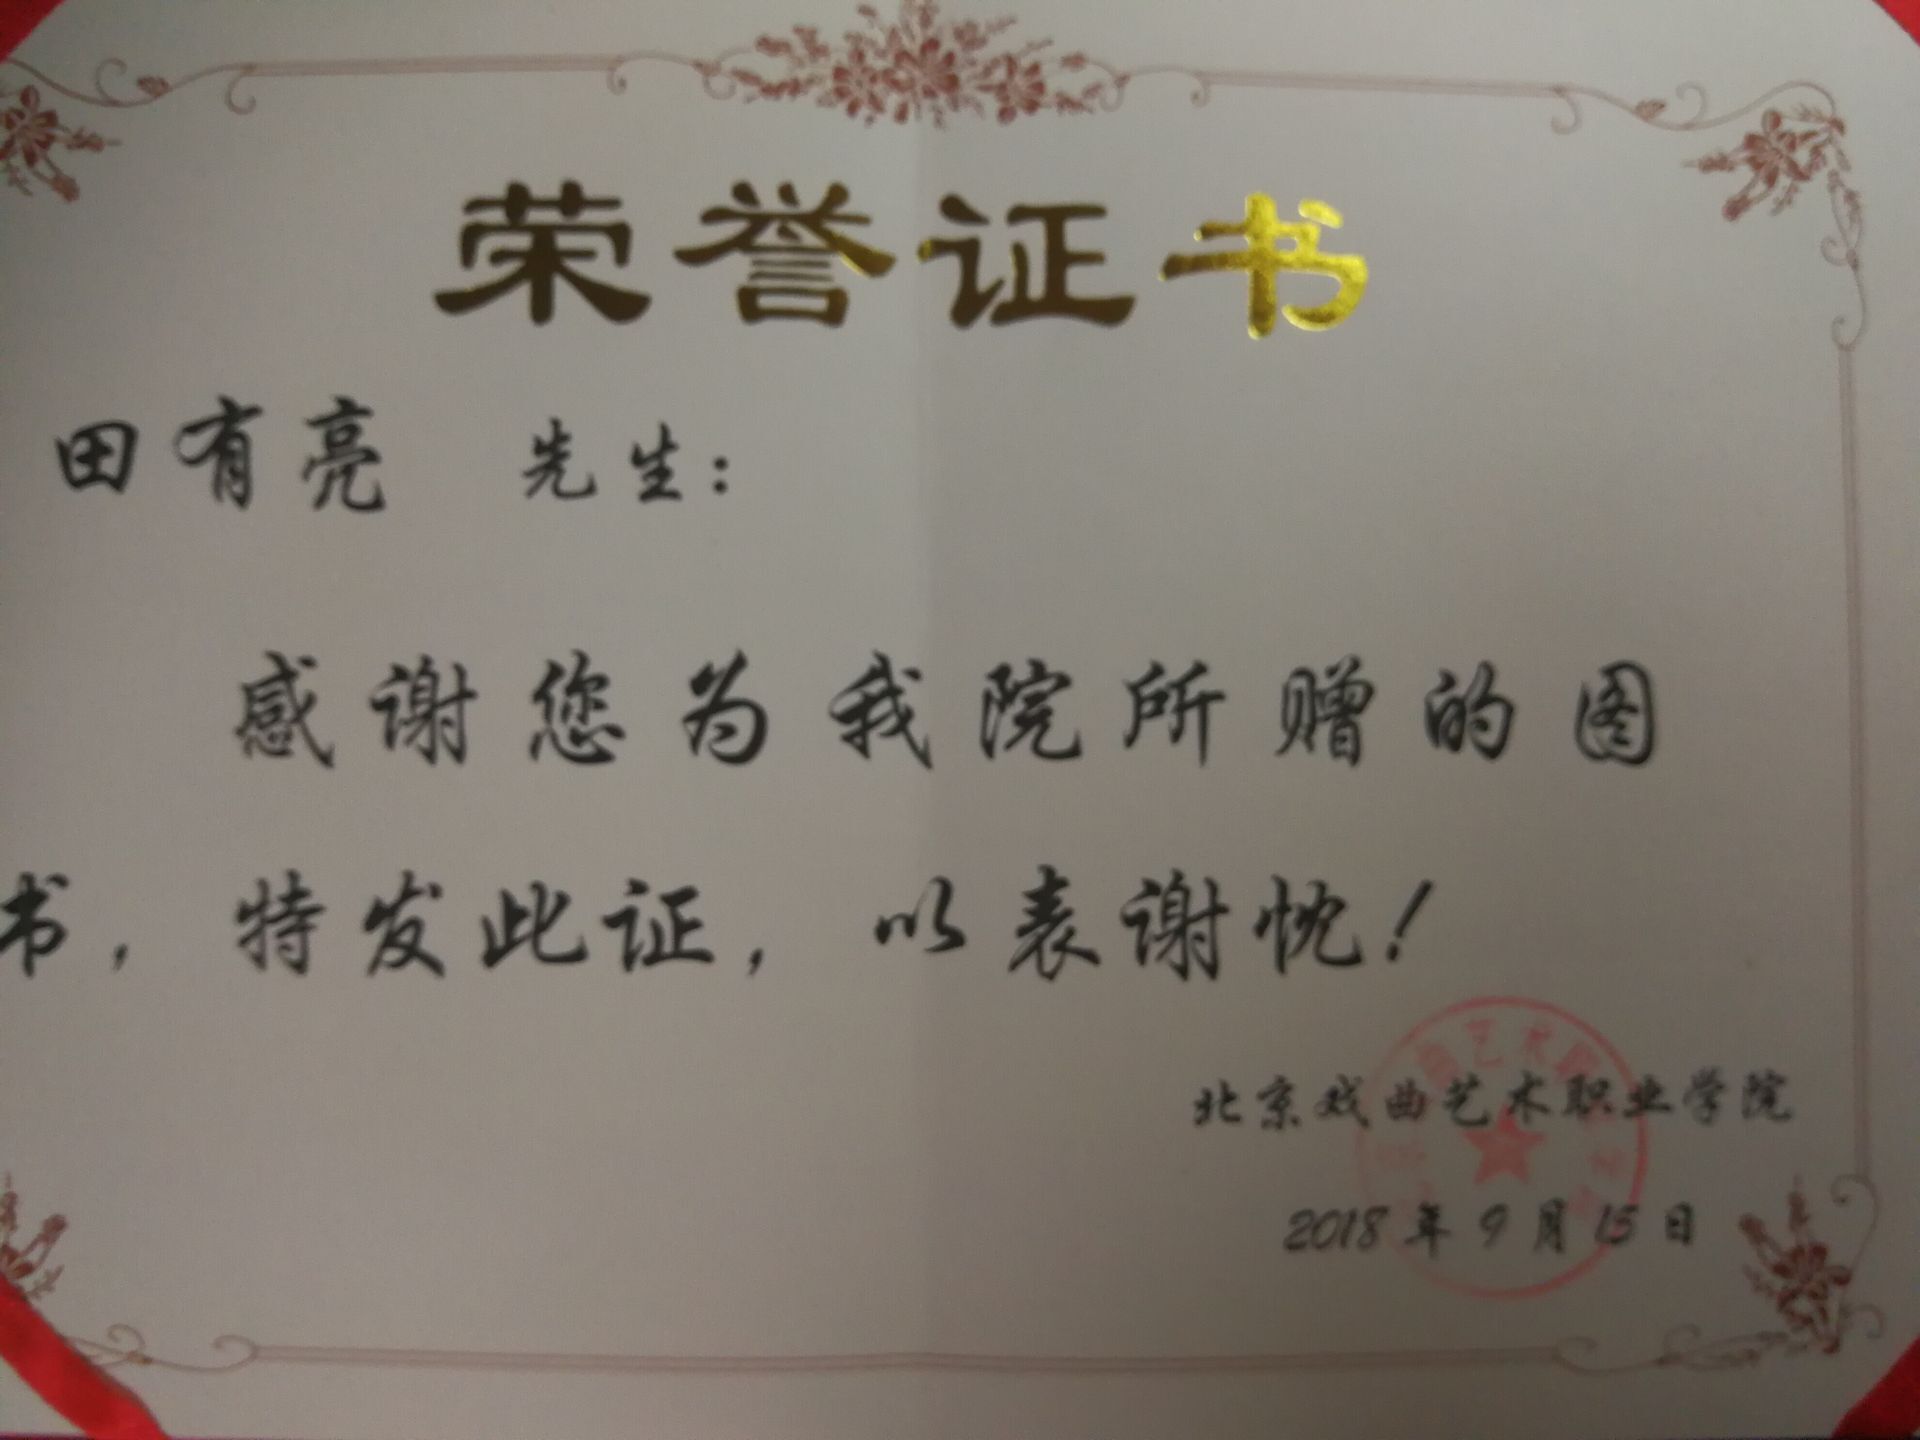 荣誉证书
田有亮 先生：
感谢您为我院所赠的图
书，特发此证，以表谢忱！
北京戏曲艺术职业学院
2018年9月15日